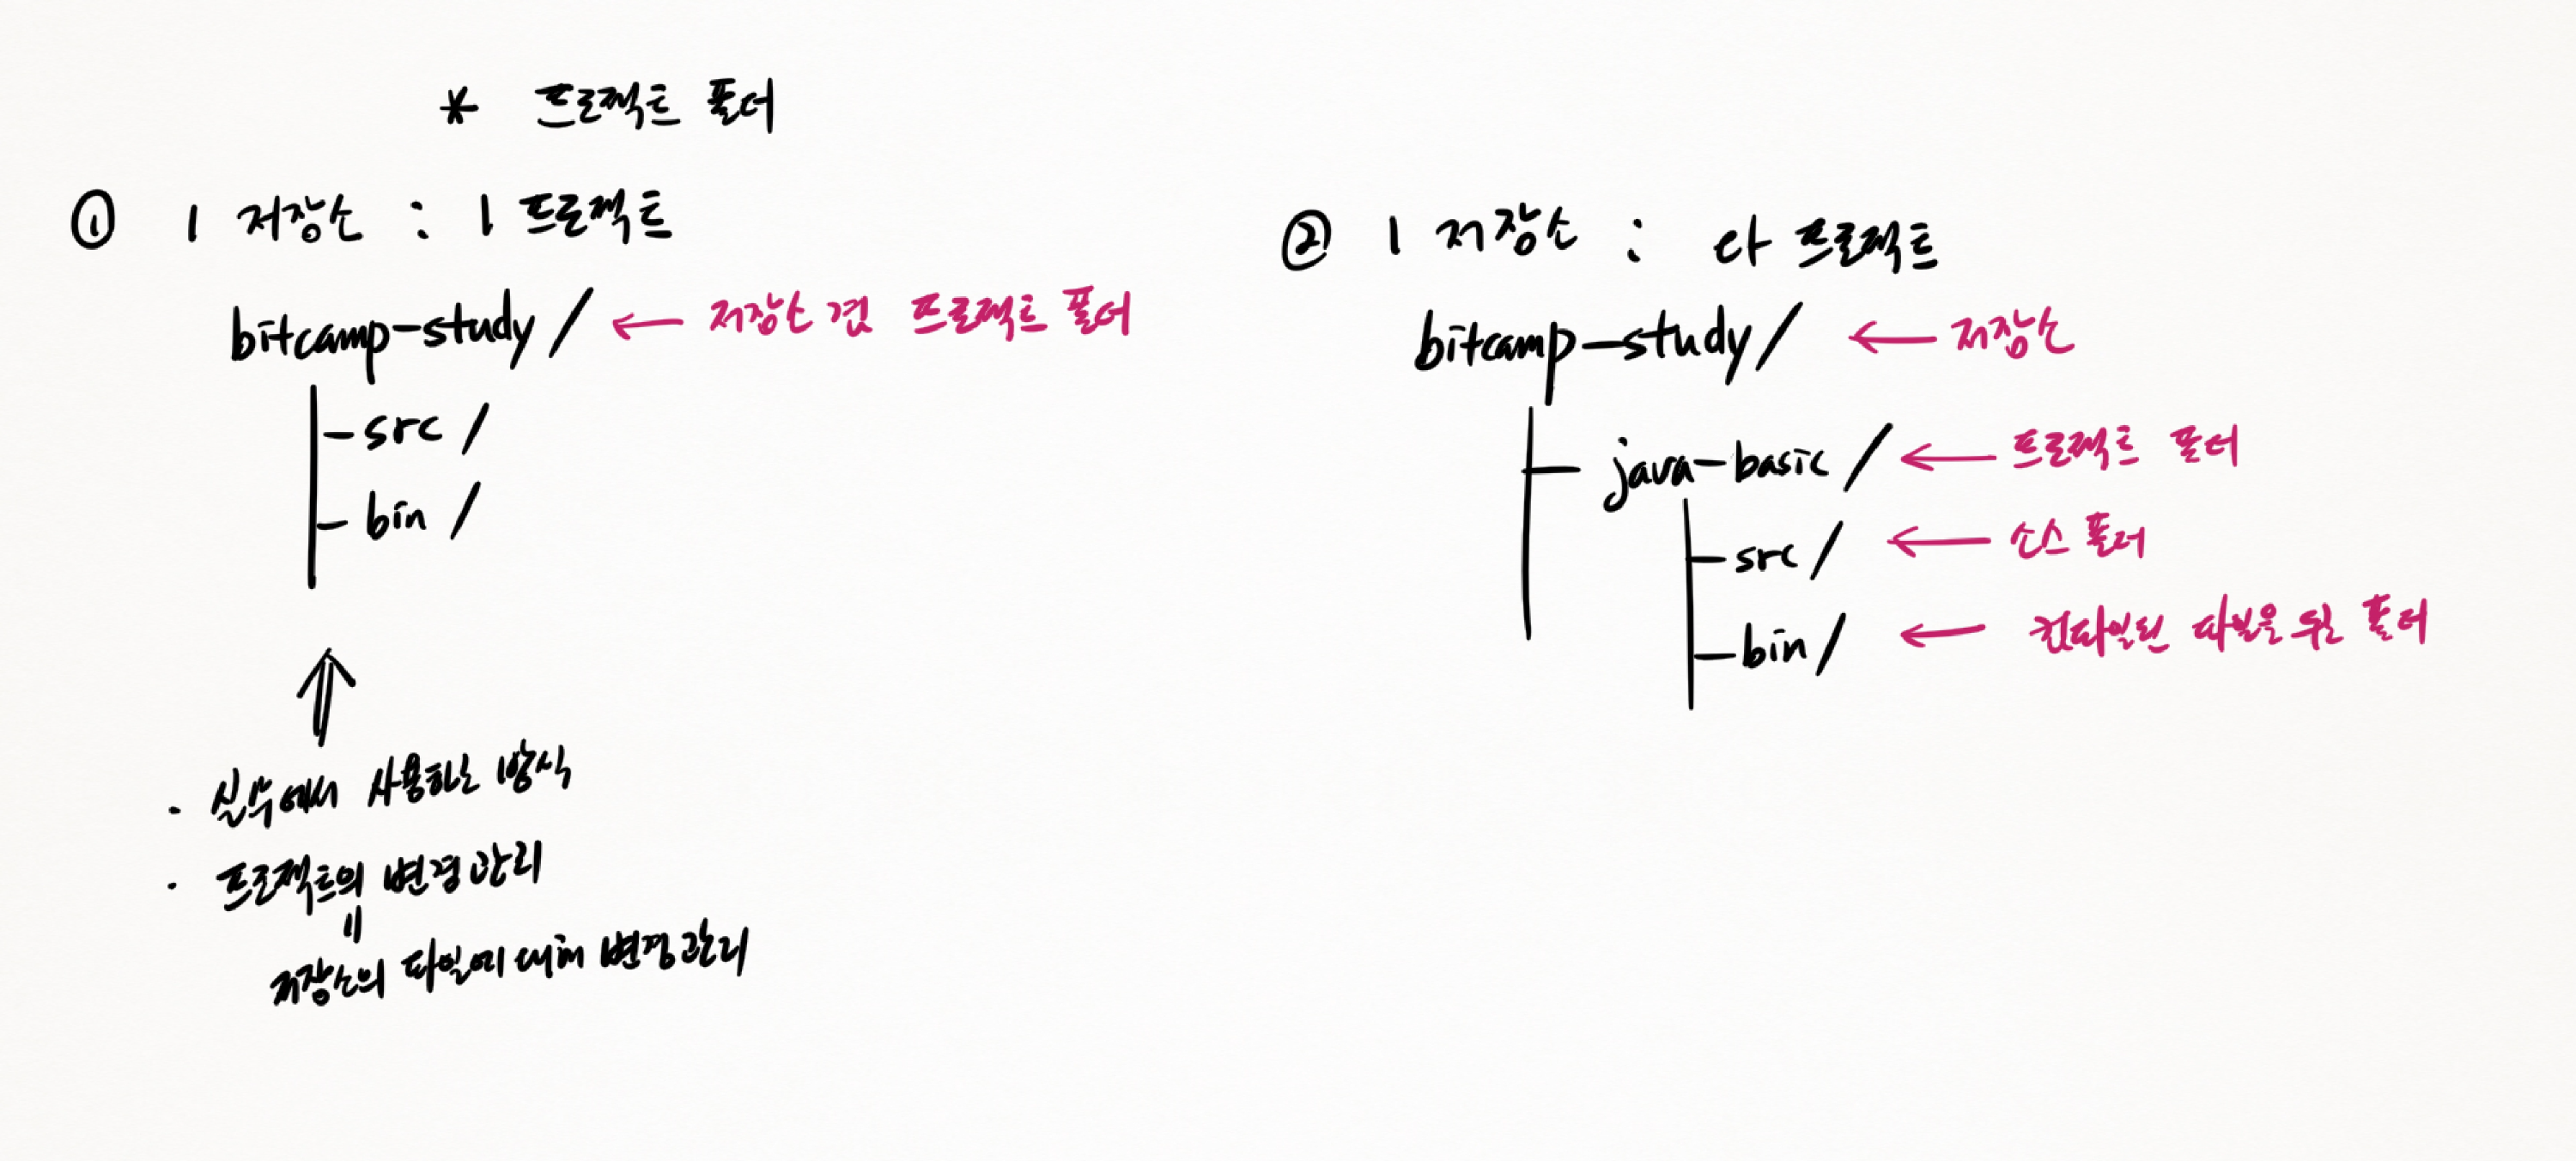 * 프로젝트 폴더
① 1 저장소 : 1 프로젝트
bitcamp-study / ← 저장소 겸 프로젝트 폴더
src /
bin /
· 실무에서 사용하는 방식
· 프로젝트의 변경관리
=
저장소의 파일에 대해 변경관리
② 1 저장소 : 다 프로젝트
bitcamp-study / ← 저장소
java-basic / ← 프로젝트 폴더
src / ← 소스 폴더
bin / ← 컴파일된 파일을 둔 폴더